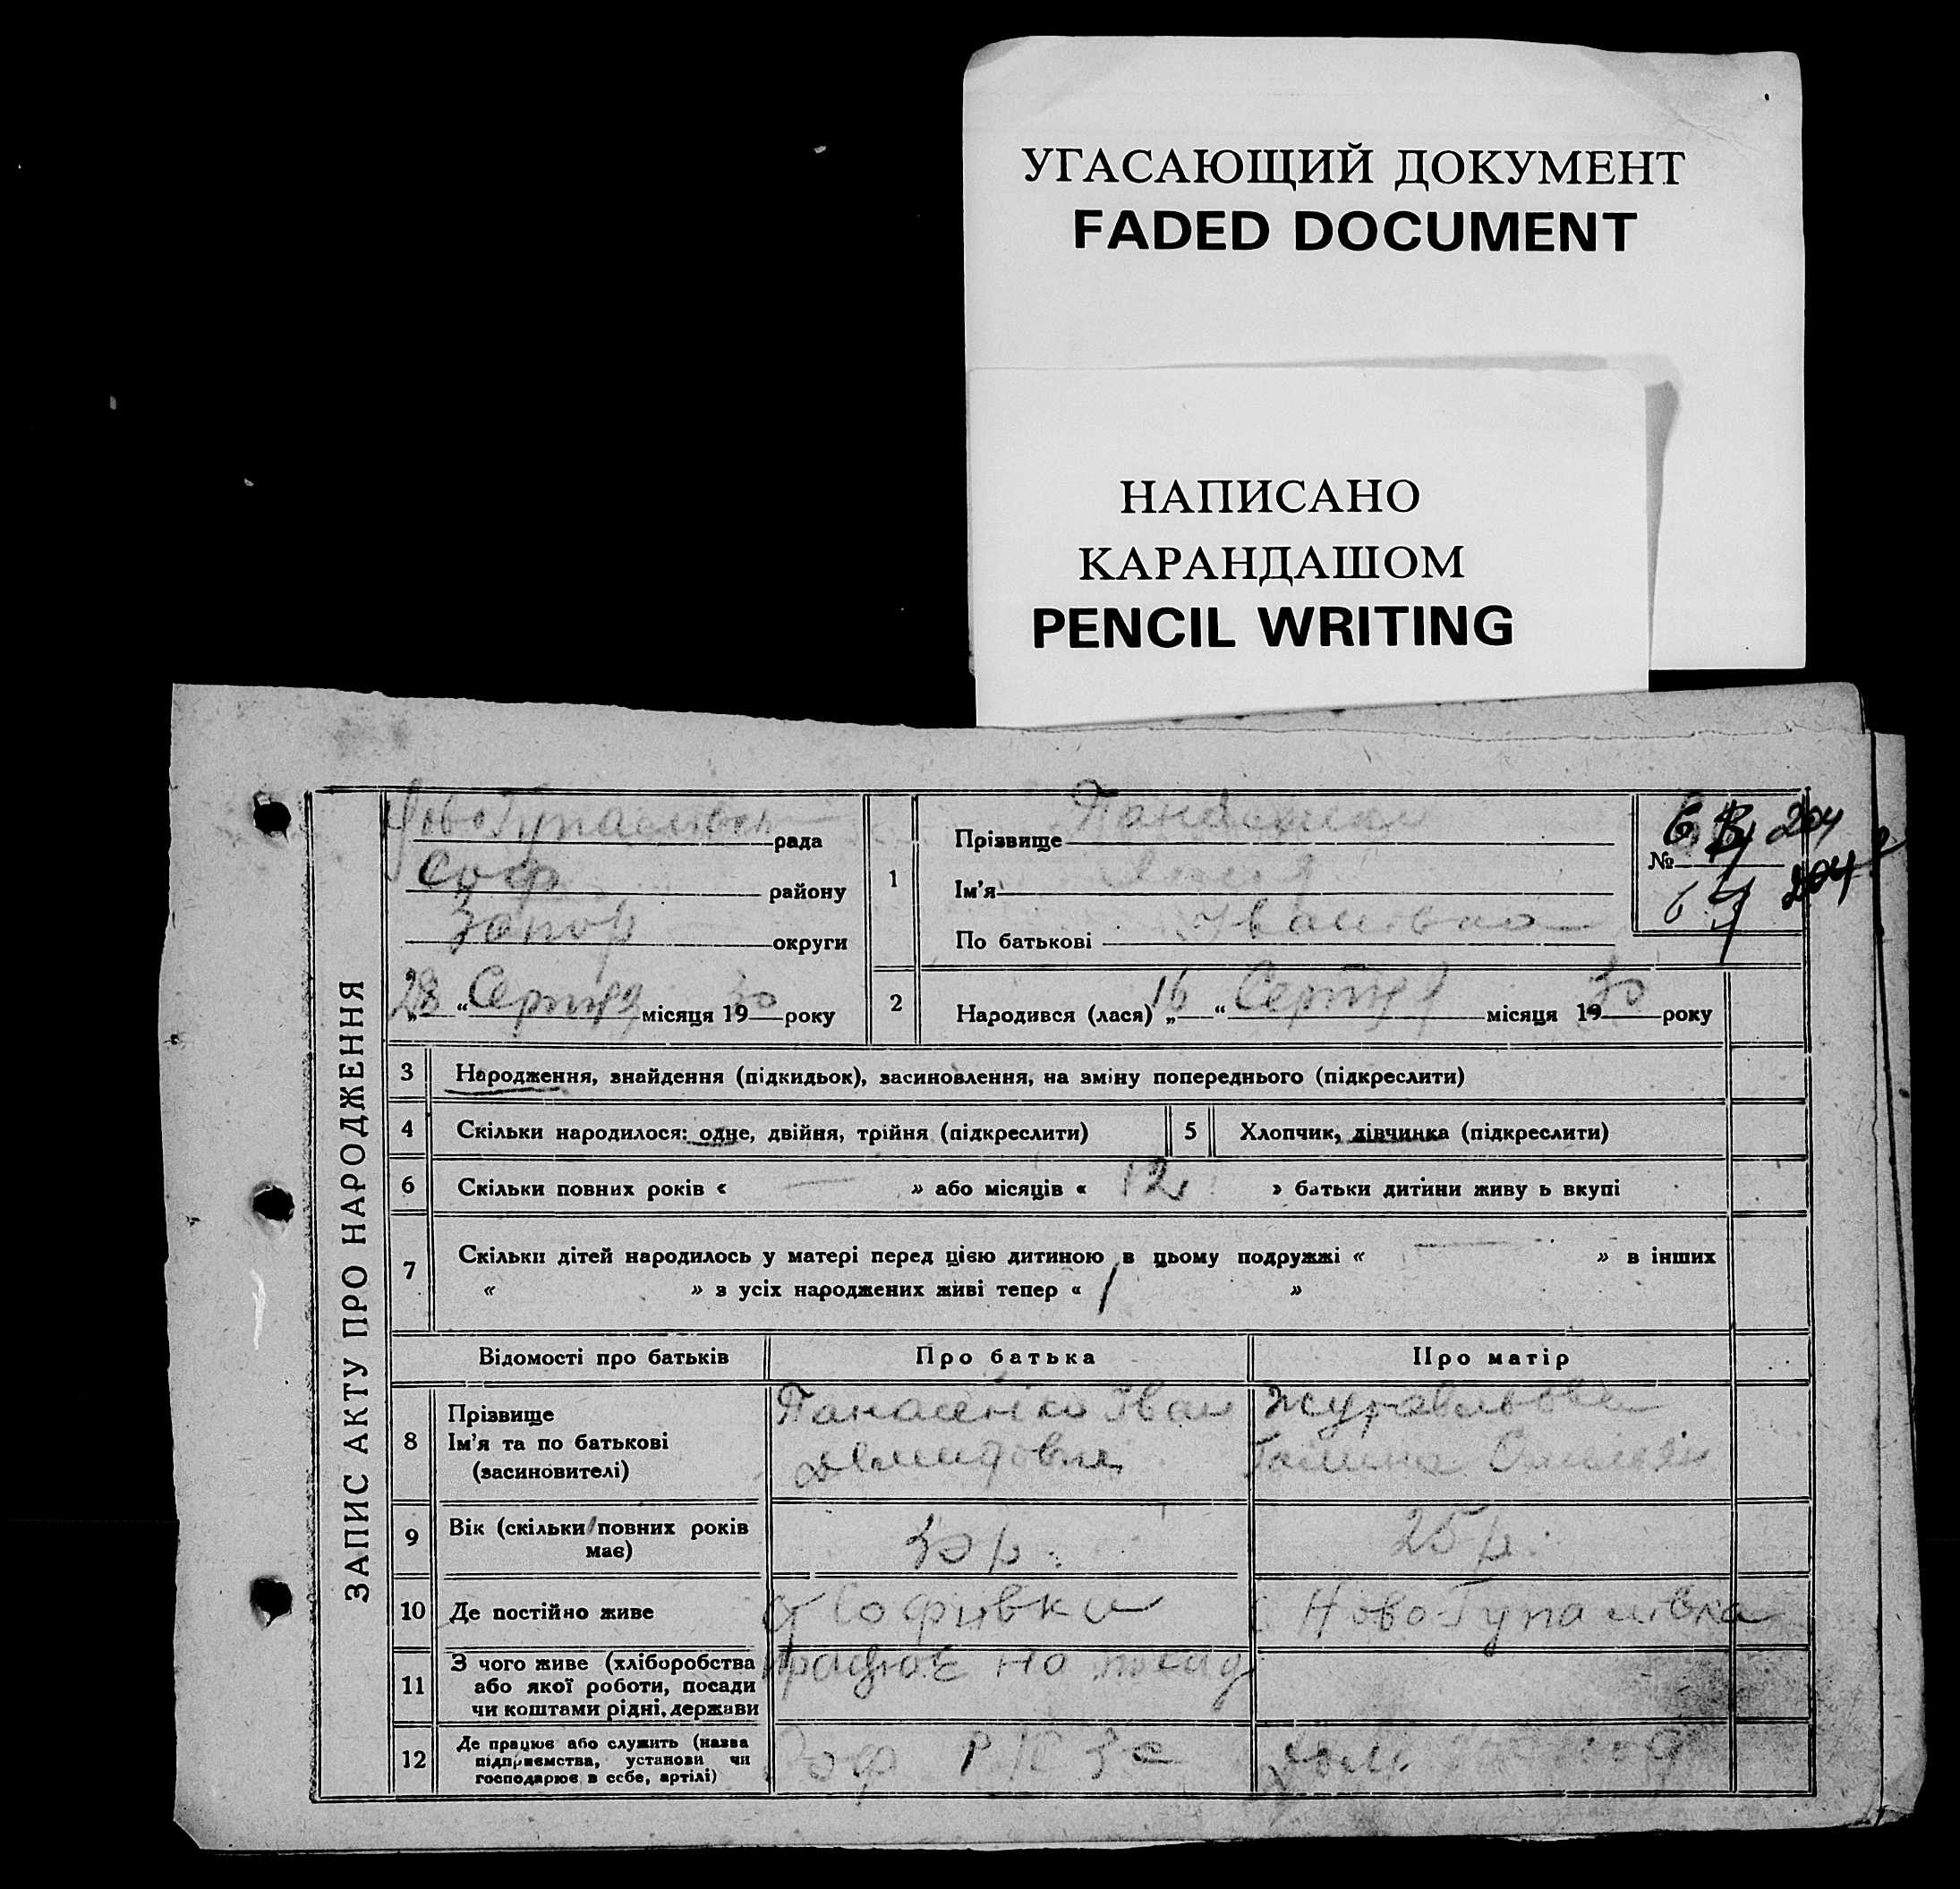 УГАСАЮЩИЙ ДОКУМЕНТ
FADED DOCUMENT
НАПИСАНО
КАРАНДАШОМ
PENCIL WRITING
ЗАПИС АКТУ ПРО НАРОДЖЕННЯ
рада
Соф району
Запор округи
„28“ Серпня місяця 1930 року
1
Прізвище
Ім'я
По батькові Івановна
№
204
204
2 Народився (лася) „16“ Серпня місяця 1930 року
3 Народження, знайдення (підкидьок), засиновлення, на зміну попереднього (підкреслити)
4 Скільки народилося: одне, двійня, трійня (підкреслити)
5 Хлопчик, дівчинка (підкреслити)
6 Скільки повних років « — » або місяців « 12 » батьки дитини живу ь вкупі
7 Скільки дітей народилось у матері перед цією дитиною в цьому подружжі « — » в інших
« » з усіх народжених живі тепер « 1 »
Відомості про батьків
Про батька
Про матір
8
Прізвище
Ім'я та по батькові
(засиновителі)
Панасенко Іван
Журавльова
Галина
9
Вік (скільки повних років
має)
30 р.
25 р.
10 Де постійно живе
Софіївка
Ново-Гупалівка
11
З чого живе (хліборобства
або якої роботи, посади
чи коштами рідні, держави
працює на посад
12
Де працює або служить (назва
підприємства, установи чи
господарює в себе, артілі)